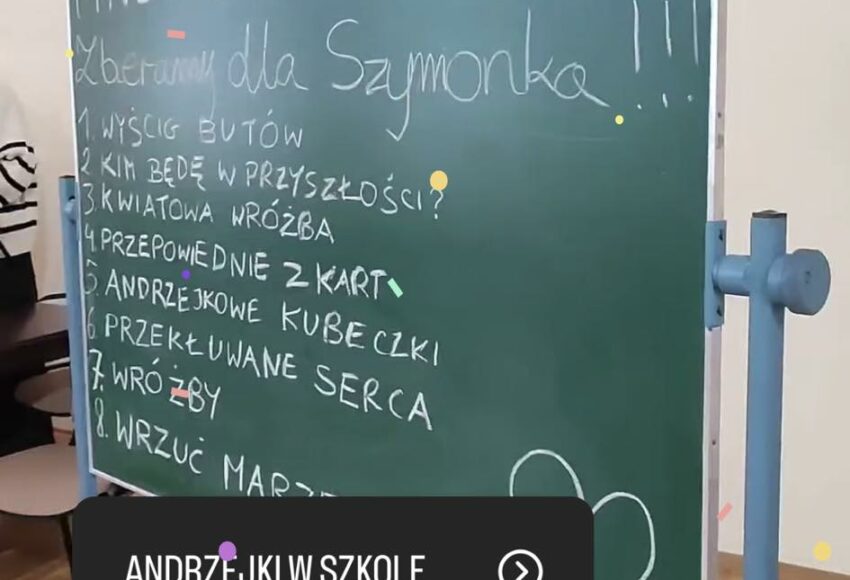 Zbieramy dla Szymonka...
1. WYŚCIG BUTÓW
2 KIM BĘDĘ W PRZYSZŁOŚCI?
3. KWIATOWA WRÓŻBA
4. PRZEPOWIEDNIE Z KART
5. ANDRZEJKOWE KUBECZKI
6 PRZEKŁUWANE SERCA
7. WRÓŻBY
8. WRZUĆ
ANDRZEJKI W SZKOLE